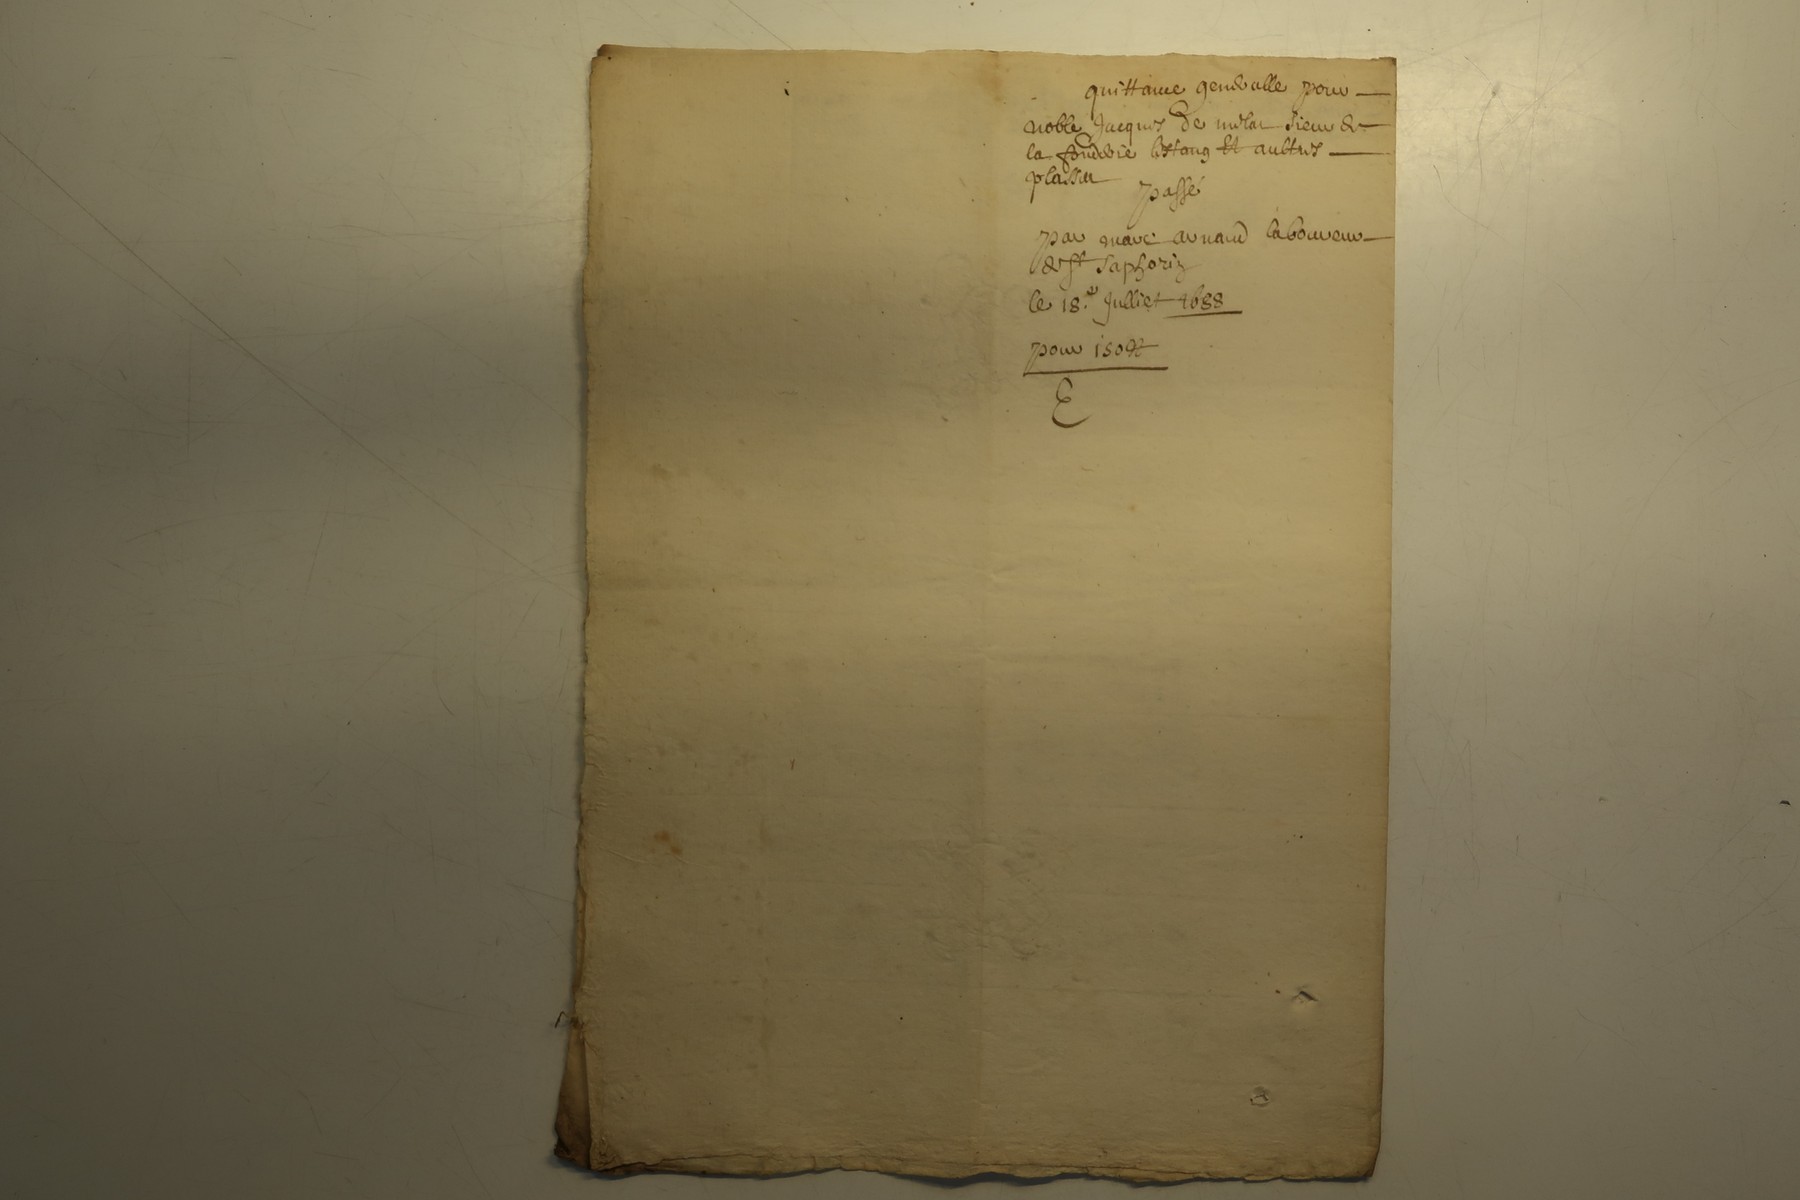 quittance generalle pour
noble Jacques de milar sieur de
la fonderie lestang et aultres
places
passé
par marc arnaud laboureur
de st saphorin
le 18.e Julliet 1688
pour 150 ₶
E